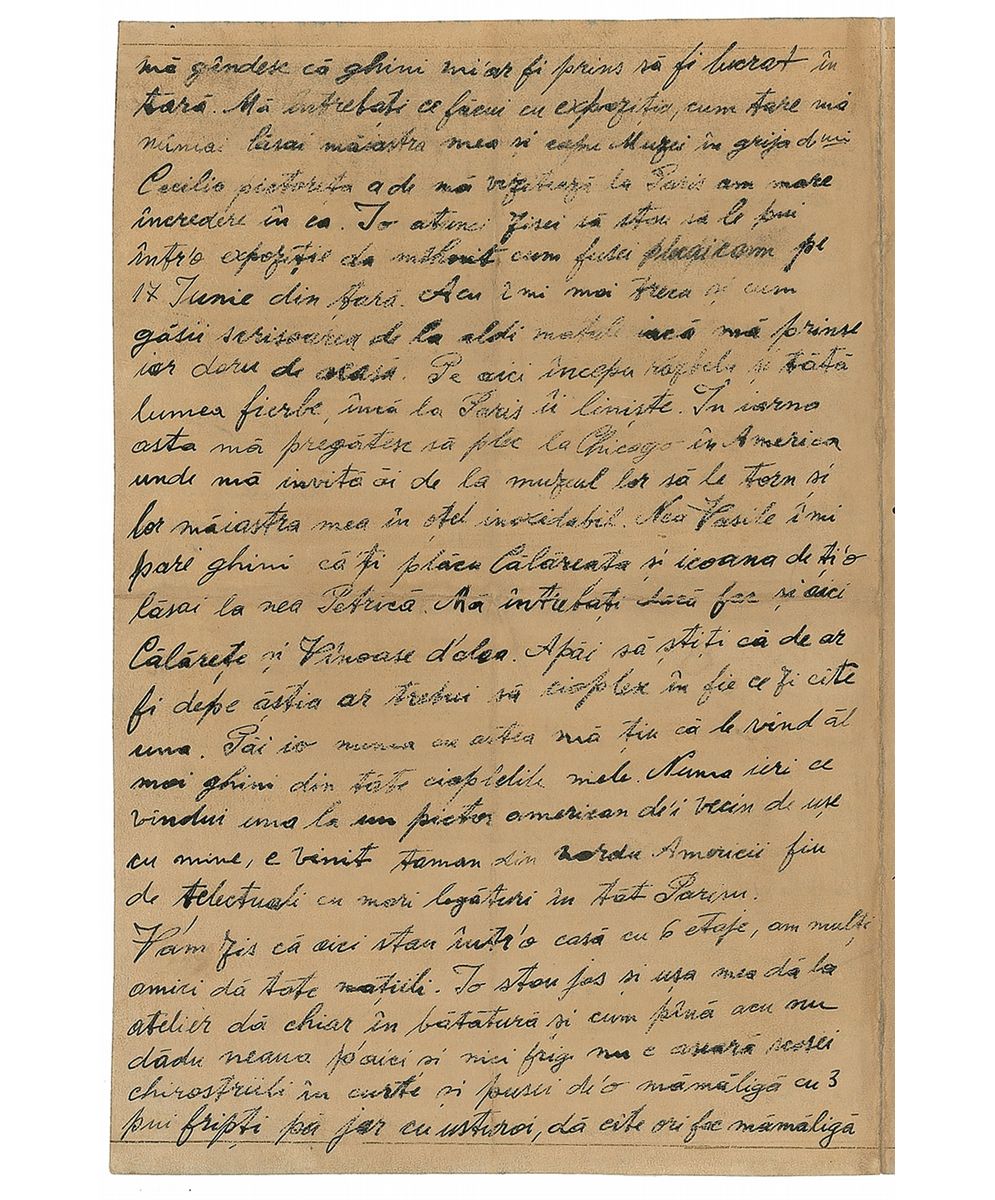 mă gîndesc că ghini mi-ar fi prins să fi lucrat în
țară. Mă întrebați ce făcui cu expoziția, cum tare mă
numai lăsai măiastra mea și capu Muzei în grija dnei
Cecilia pictorița a de mă vizitează la Paris am mare
încredere în ea. Io atunci zisei să stau să le pui
într'o expoziție da mîhnit cum fusei plecai cam pe
17 Iunie din țară. Acu îmi mai trecu și cum
găsii scrisoarea de la aldi matale iacă mă prinse
iar doru de acasă. Pe aici începu răzbelu și tătă
lumea fierbe, încă la Paris îi liniște. In iarna
asta mă pregătesc să plec la Chicago în America
unde mă invită ăi de la muzeul lor să le torn și
lor măiastra mea în oțel inoxidabil. Nea Vasile îmi
pare ghini că ți plăcu Călăreața și icoana de ți'o
lăsai la nea Petrică. Mă întrebați dacă fac și aici
Călărețe și Vînoase d'alea. Apăi să știți că de ar
fi depe ăștia ar trebui să cioplesc în fie ce zi cîte
una. Păi io numa cu astea mă țiu că le vînd ăl
mai ghini din tăte cioplelile mele. Numa ieri ce
vîndui una la un pictor american de'i vecin de ușe
cu mine, e vinit taman din nordu Americii fiu
de telectuali cu mari legături în tăt Parisu.
V'am zis că aici stau într'o casă cu 6 etaje, am mulți
amici dă tăte națiili. Io stau jos și ușa mea dă la
atelier dă chiar în bătătură și cum pînă acu nu
dădu neaua p'aici și nici frig nu e scosei
chirostriili în curte și pusei de'o mămăligă cu 3
pui fripți pă jar cu usturoi, dă cîte ori fac mămăligă